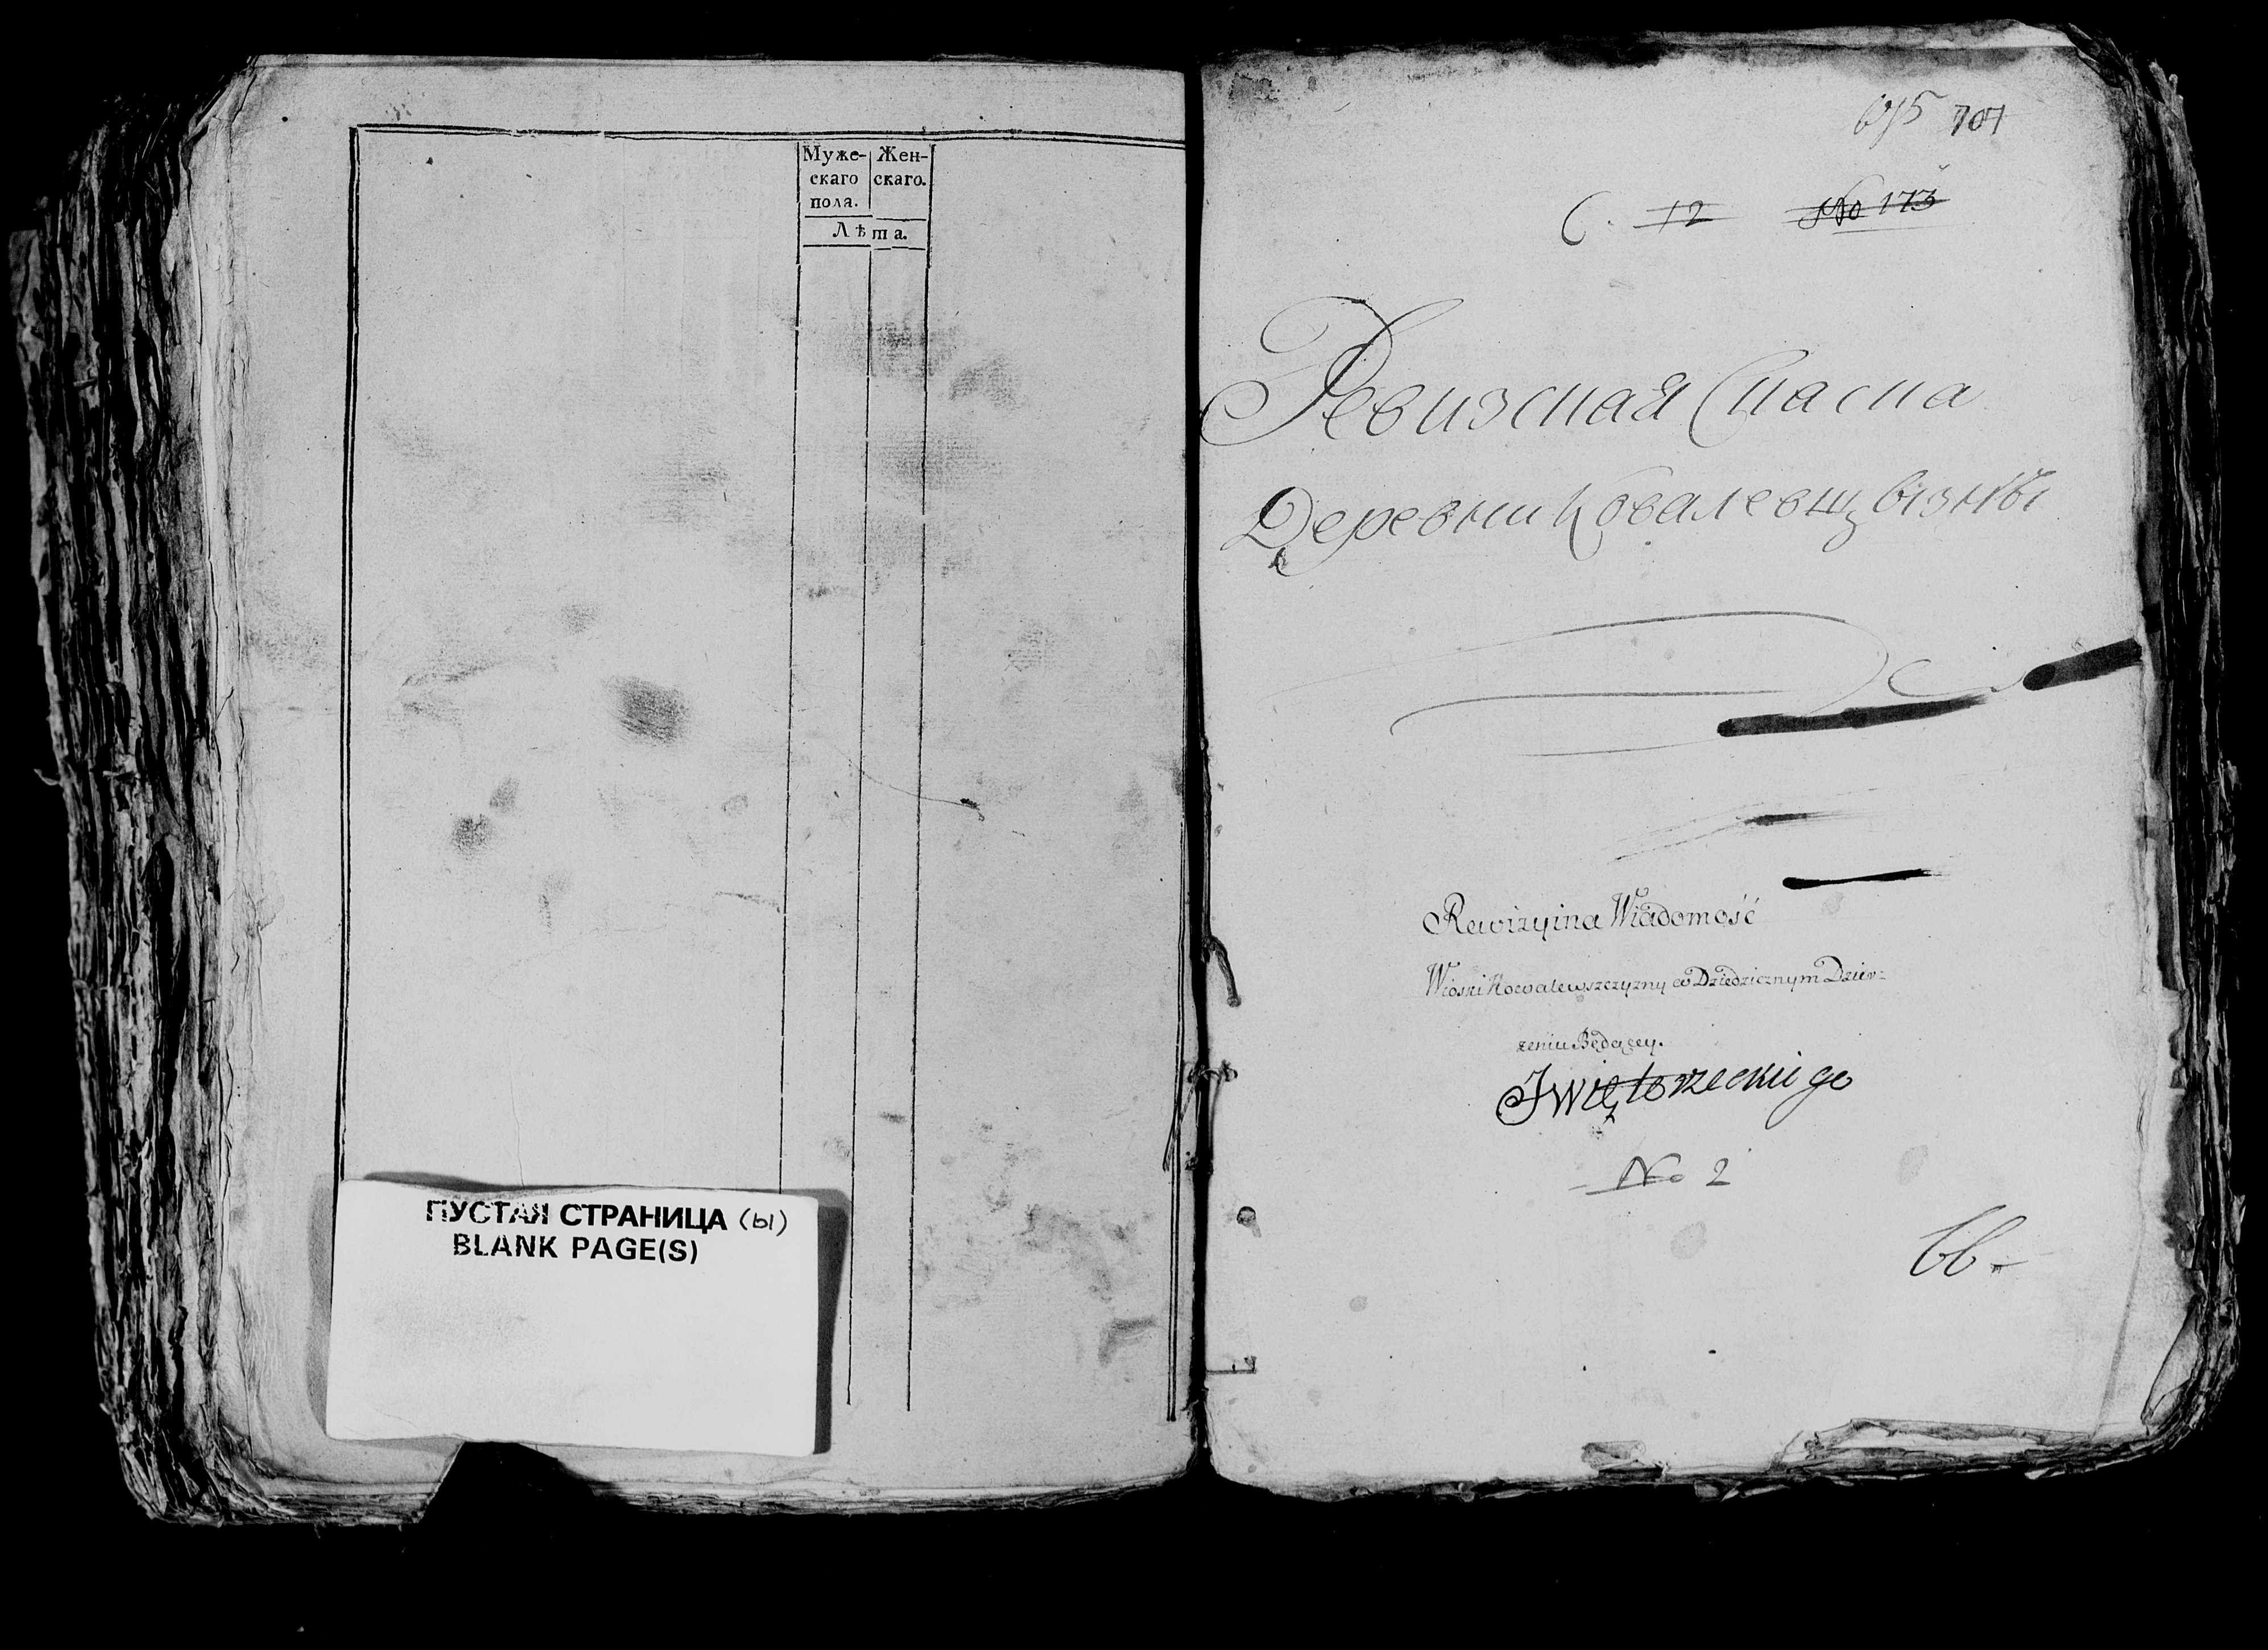 Муже- Жен-
скаго скаго.
пола.
Лѣта.
ПУСТАЯ СТРАНИЦА (Ы)
BLANK PAGE(S)
695 707
12 No 173
Ревизская Скаска
Деревни Ковалевщвізны
Rewizyina Wiadomość
Wioski Kowalewszczyzny w Dziedzicznym Dzier-
zeniu Będącey.
Swiętorzeckiigo
No 2